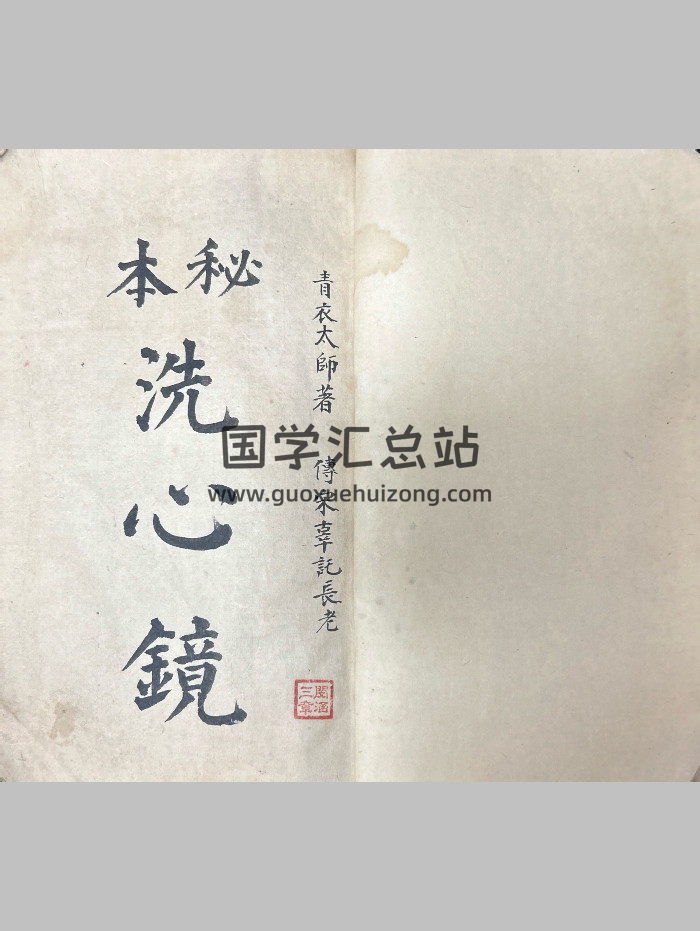 青衣太師著 傳宋辜託長老
秘本
洗心鏡
国学汇总站
www.guoxuehuizong.com